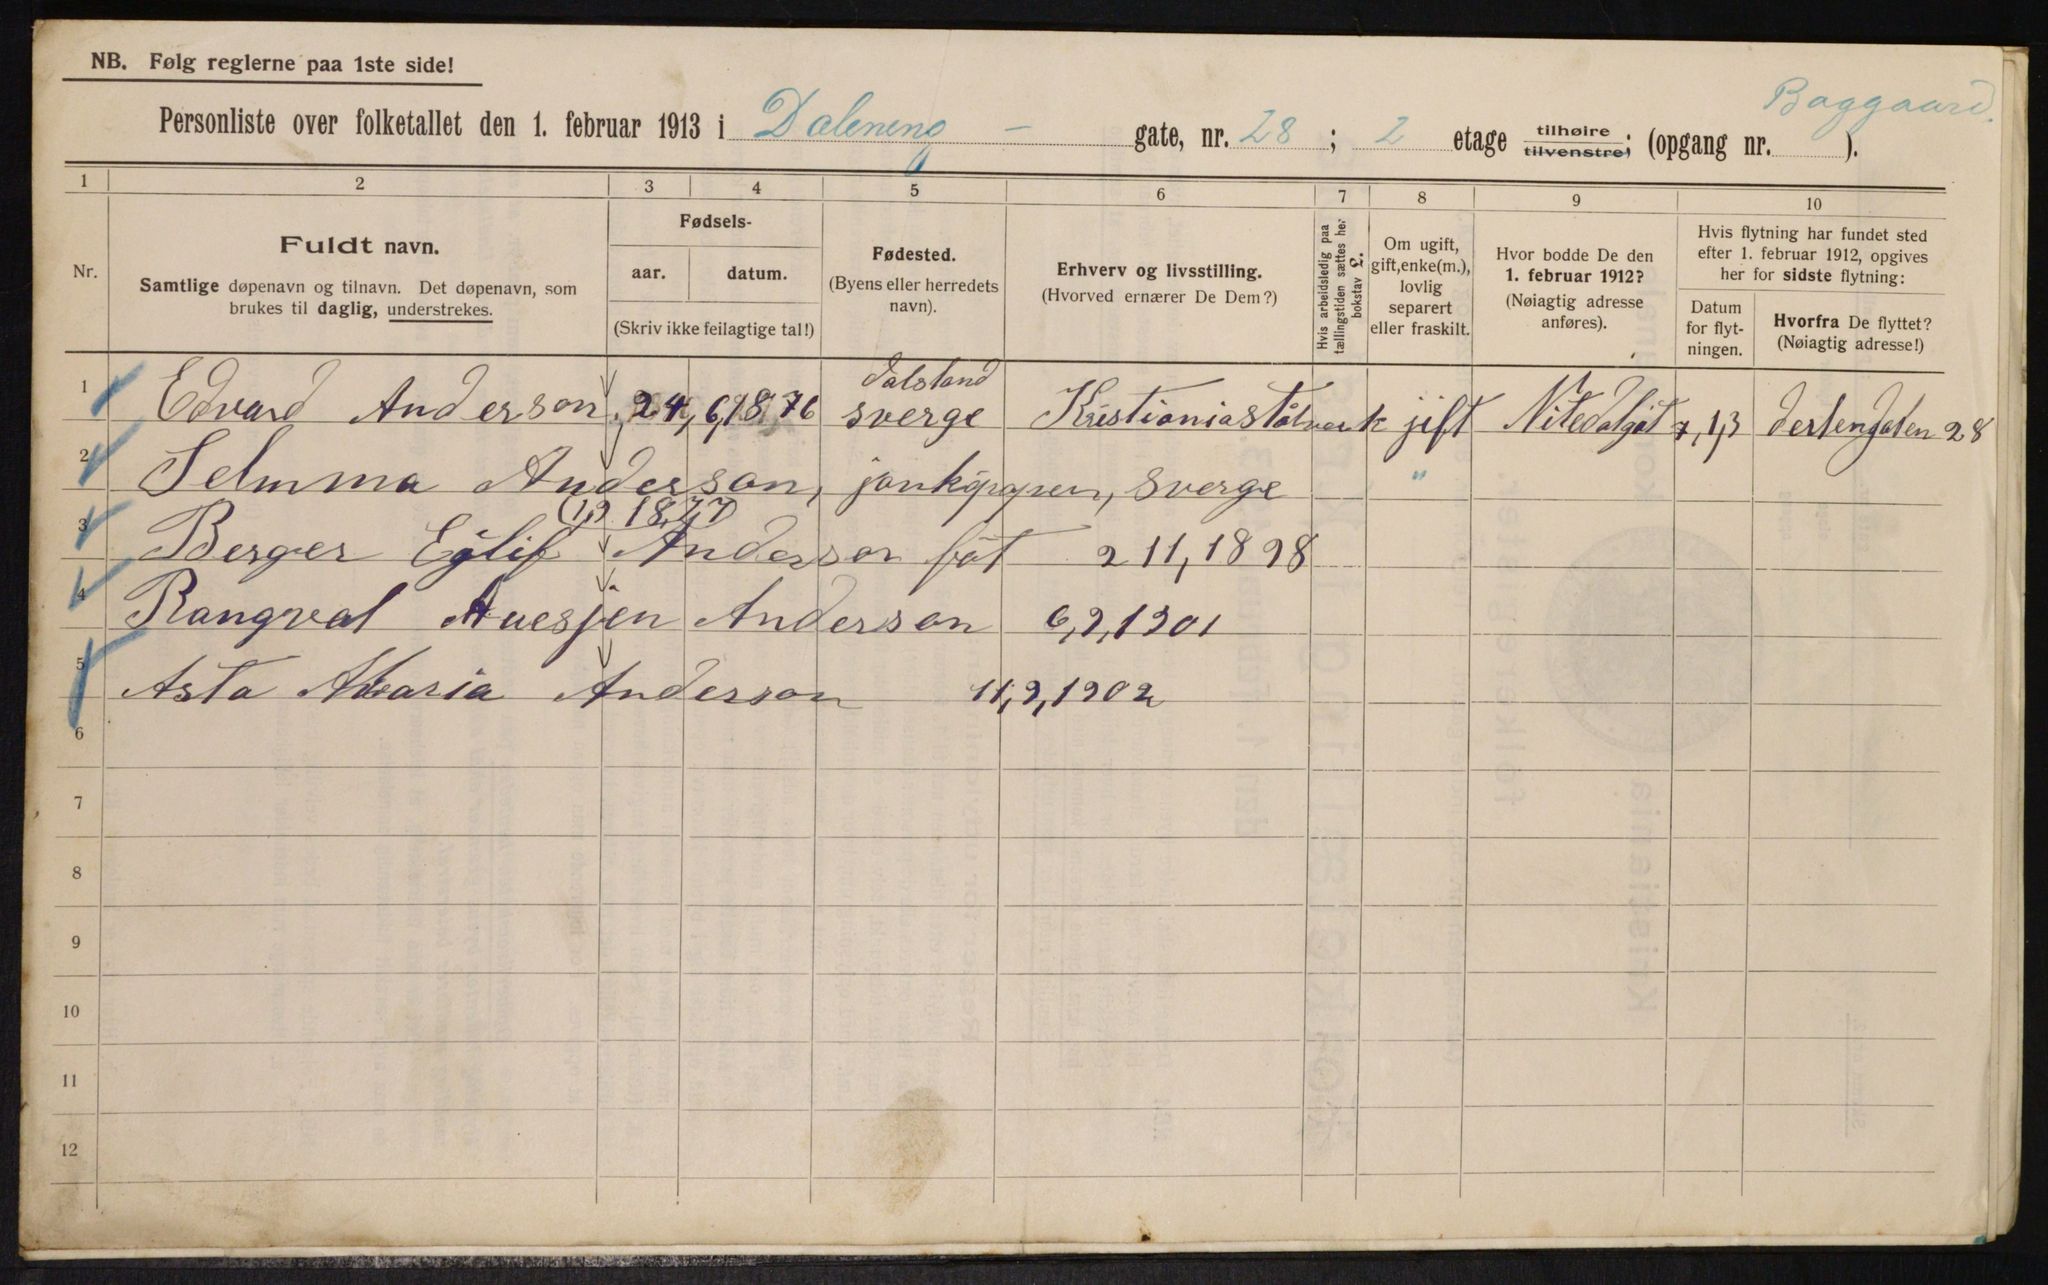 NB. Følg reglerne paa 1ste side!
Baggaard.
Personliste over folketallet den 1. februar 1913 i Daleneng - gate, nr. 28 ; 2 etage tilhøire tilvenstre; (opgang nr. ).
1 2 3 4 5 6 7 8 9 10
Nr.
Fuldt navn.
Samtlige døpenavn og tilnavn. Det døpenavn, som
brukes til daglig, understrekes.
Fødsels-
aar. datum.
(Skriv ikke feilagtige tal!)
Fødested.
(Byens eller herredets
navn).
Erhverv og livsstilling.
(Hvorved ernærer De Dem?)
Hvis arbeidsledig paa
tællingstiden sættes her
bokstav L.
Om ugift,
gift, enke(m.),
lovlig
separert
eller fraskilt.
Hvor bodde De den
1. februar 1912?
(Nøiagtig adresse
anføres).
Hvis flytning har fundet sted
efter 1. februar 1912, opgives
her for sidste flytning:
Datum
for flyt-
ningen.
Hvorfra De flyttet?
(Nøiagtig adresse!)
dalsland
1 Edvard Anderson, 24, 6, 18, 76 sverge Kristiania stålverk jift Nitedalgat 7, 1, 13 28
2 Selmma Anderson, jonkøppen, sverge "
1,9 18,77
3 Berger Eglif Anderson føt 2 11, 1898
4 Rangval Anderson 6, 9, 1901
5 Asta Maria Anderson 11, 9, 1902
6
7
8
9
10
11
12